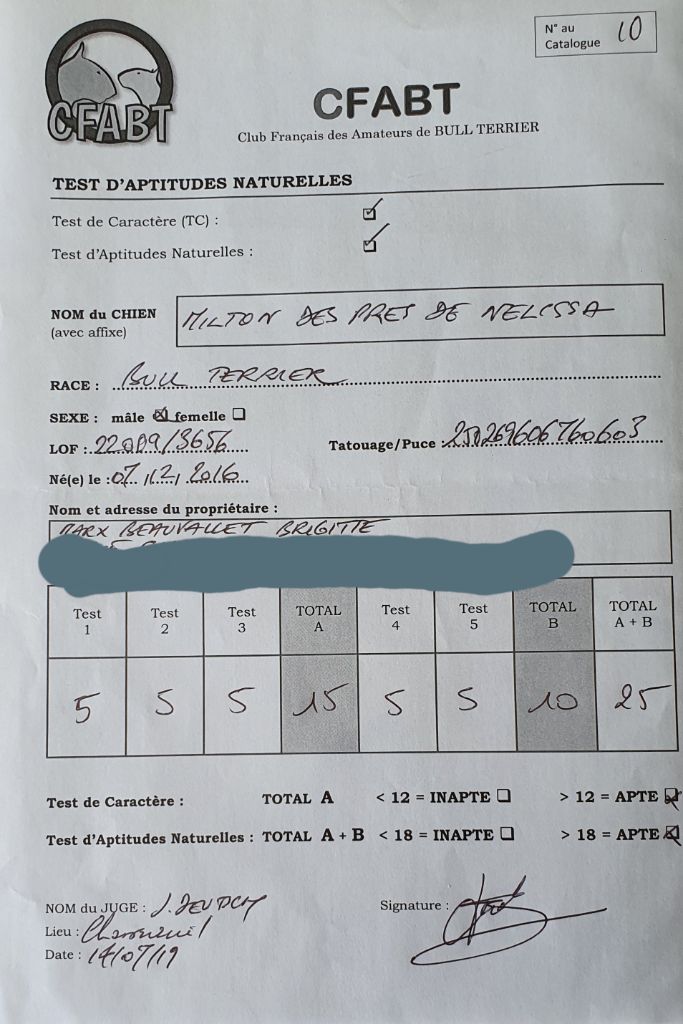 N° au
Catalogue 10
CFABT
CFABT
Club Français des Amateurs de BULL TERRIER
TEST D'APTITUDES NATURELLES
Test de Caractère (TC) : ☑
Test d'Aptitudes Naturelles : ☑
NOM du CHIEN
(avec affixe)
MILTON DES PRES DE NELISSA
RACE : BULL TERRIER
SEXE : mâle ☒ femelle ☐
LOF : 22009/3656
Tatouage/Puce : 250269606760603
Né(e) le : 07.12.2016
Nom et adresse du propriétaire :
MARX BEAUVALLET BRIGITTE
Test 1 Test 2 Test 3 TOTAL A Test 4 Test 5 TOTAL B TOTAL A + B
5 5 5 15 5 5 10 25
Test de Caractère : TOTAL A < 12 = INAPTE ☐ > 12 = APTE ☒
Test d'Aptitudes Naturelles : TOTAL A + B < 18 = INAPTE ☐ > 18 = APTE ☒
NOM du JUGE : J.
Signature :
Lieu :
Date : 14/07/19